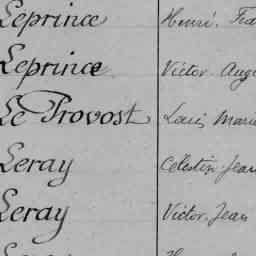 Leprince Henri, 
Leprince Victor Aug
Le Provost Louis Marie
Leray Célestin Jean
Leray Victor, Jean